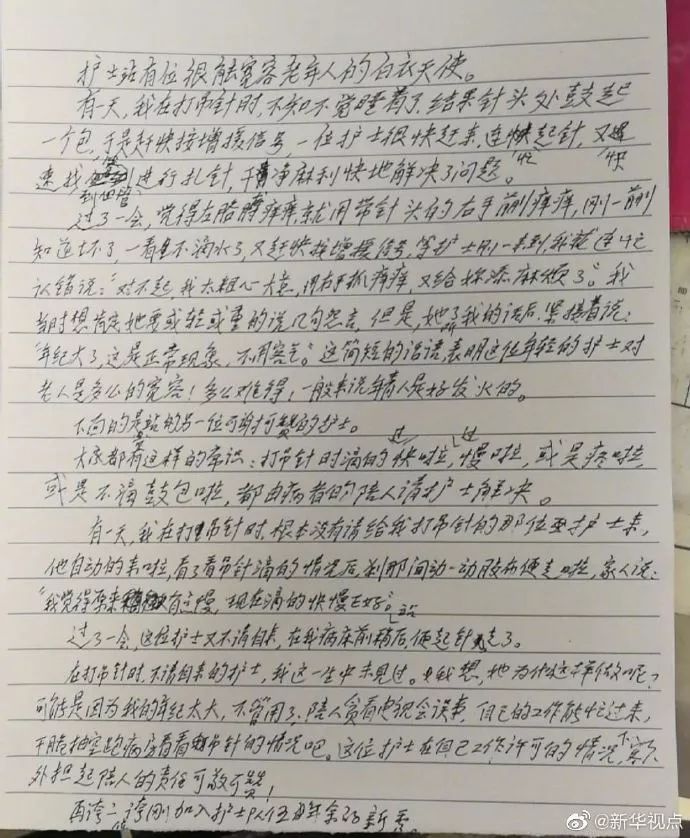 护士站有位很能宽容老年人的白衣天使。
有一天,我在打吊针时,不知不觉睡着了,结果针头处鼓起
一个包,于是赶快按增援信号,一位护士很快赶来,连忙起针,又快
速找到血管进行扎针,干净麻利快地解决了问题。
过了一会,觉得左胳膊痒痒,就用带针头的右手前刪痒痒,刚一前刪
知道坏了,一看是不滴水了,又赶快按增援信号,等护士刚一来到,我就连忙
认错说:"对不起,我太粗心大意,用右手抓痒痒,又给你添麻烦了。"我
当时想肯定她要或轻或重的说几句怨言,但是,她听了我的话后,紧接着说:
"年纪大了,这是正常现象,不用客气。"这简短的话语,表明这位年轻的护士对
老人是多么的宽容!多么难得,一般来说年青人是好发火的。
不同的是站的另一位可前可赞的护士。
大家都有这样的常识:打吊针时滴的过快啦,过慢啦,或是疼啦,
或是不滴鼓包啦,都由病者的陪人请护士解决。
有一天,我在打吊针时,根本没有请给我打吊针的那位护士来,
他自动的来啦,看了看吊针滴的情况后,刹那间动一动胶布便走啦,家人说:
"我觉得原来有过慢,现在滴的快慢正好。"
过了一会,这位护士又不请自来,在我病床前稍站后,便起针走了。
在打吊针时,不请自来的护士,我这一生中未见过。我想,她为什么这样做呢?
可能是因为我的年纪太大,不管用了,陪人贪看电视会误事,自己的工作能忙过来,
干脆抽空跑病房看看吊针的情况吧。这位护士在自己工作许可的情况下,额
外担起陪人的责任可敬可赞!
再夸一夸刚加入护士队伍
@新华视点